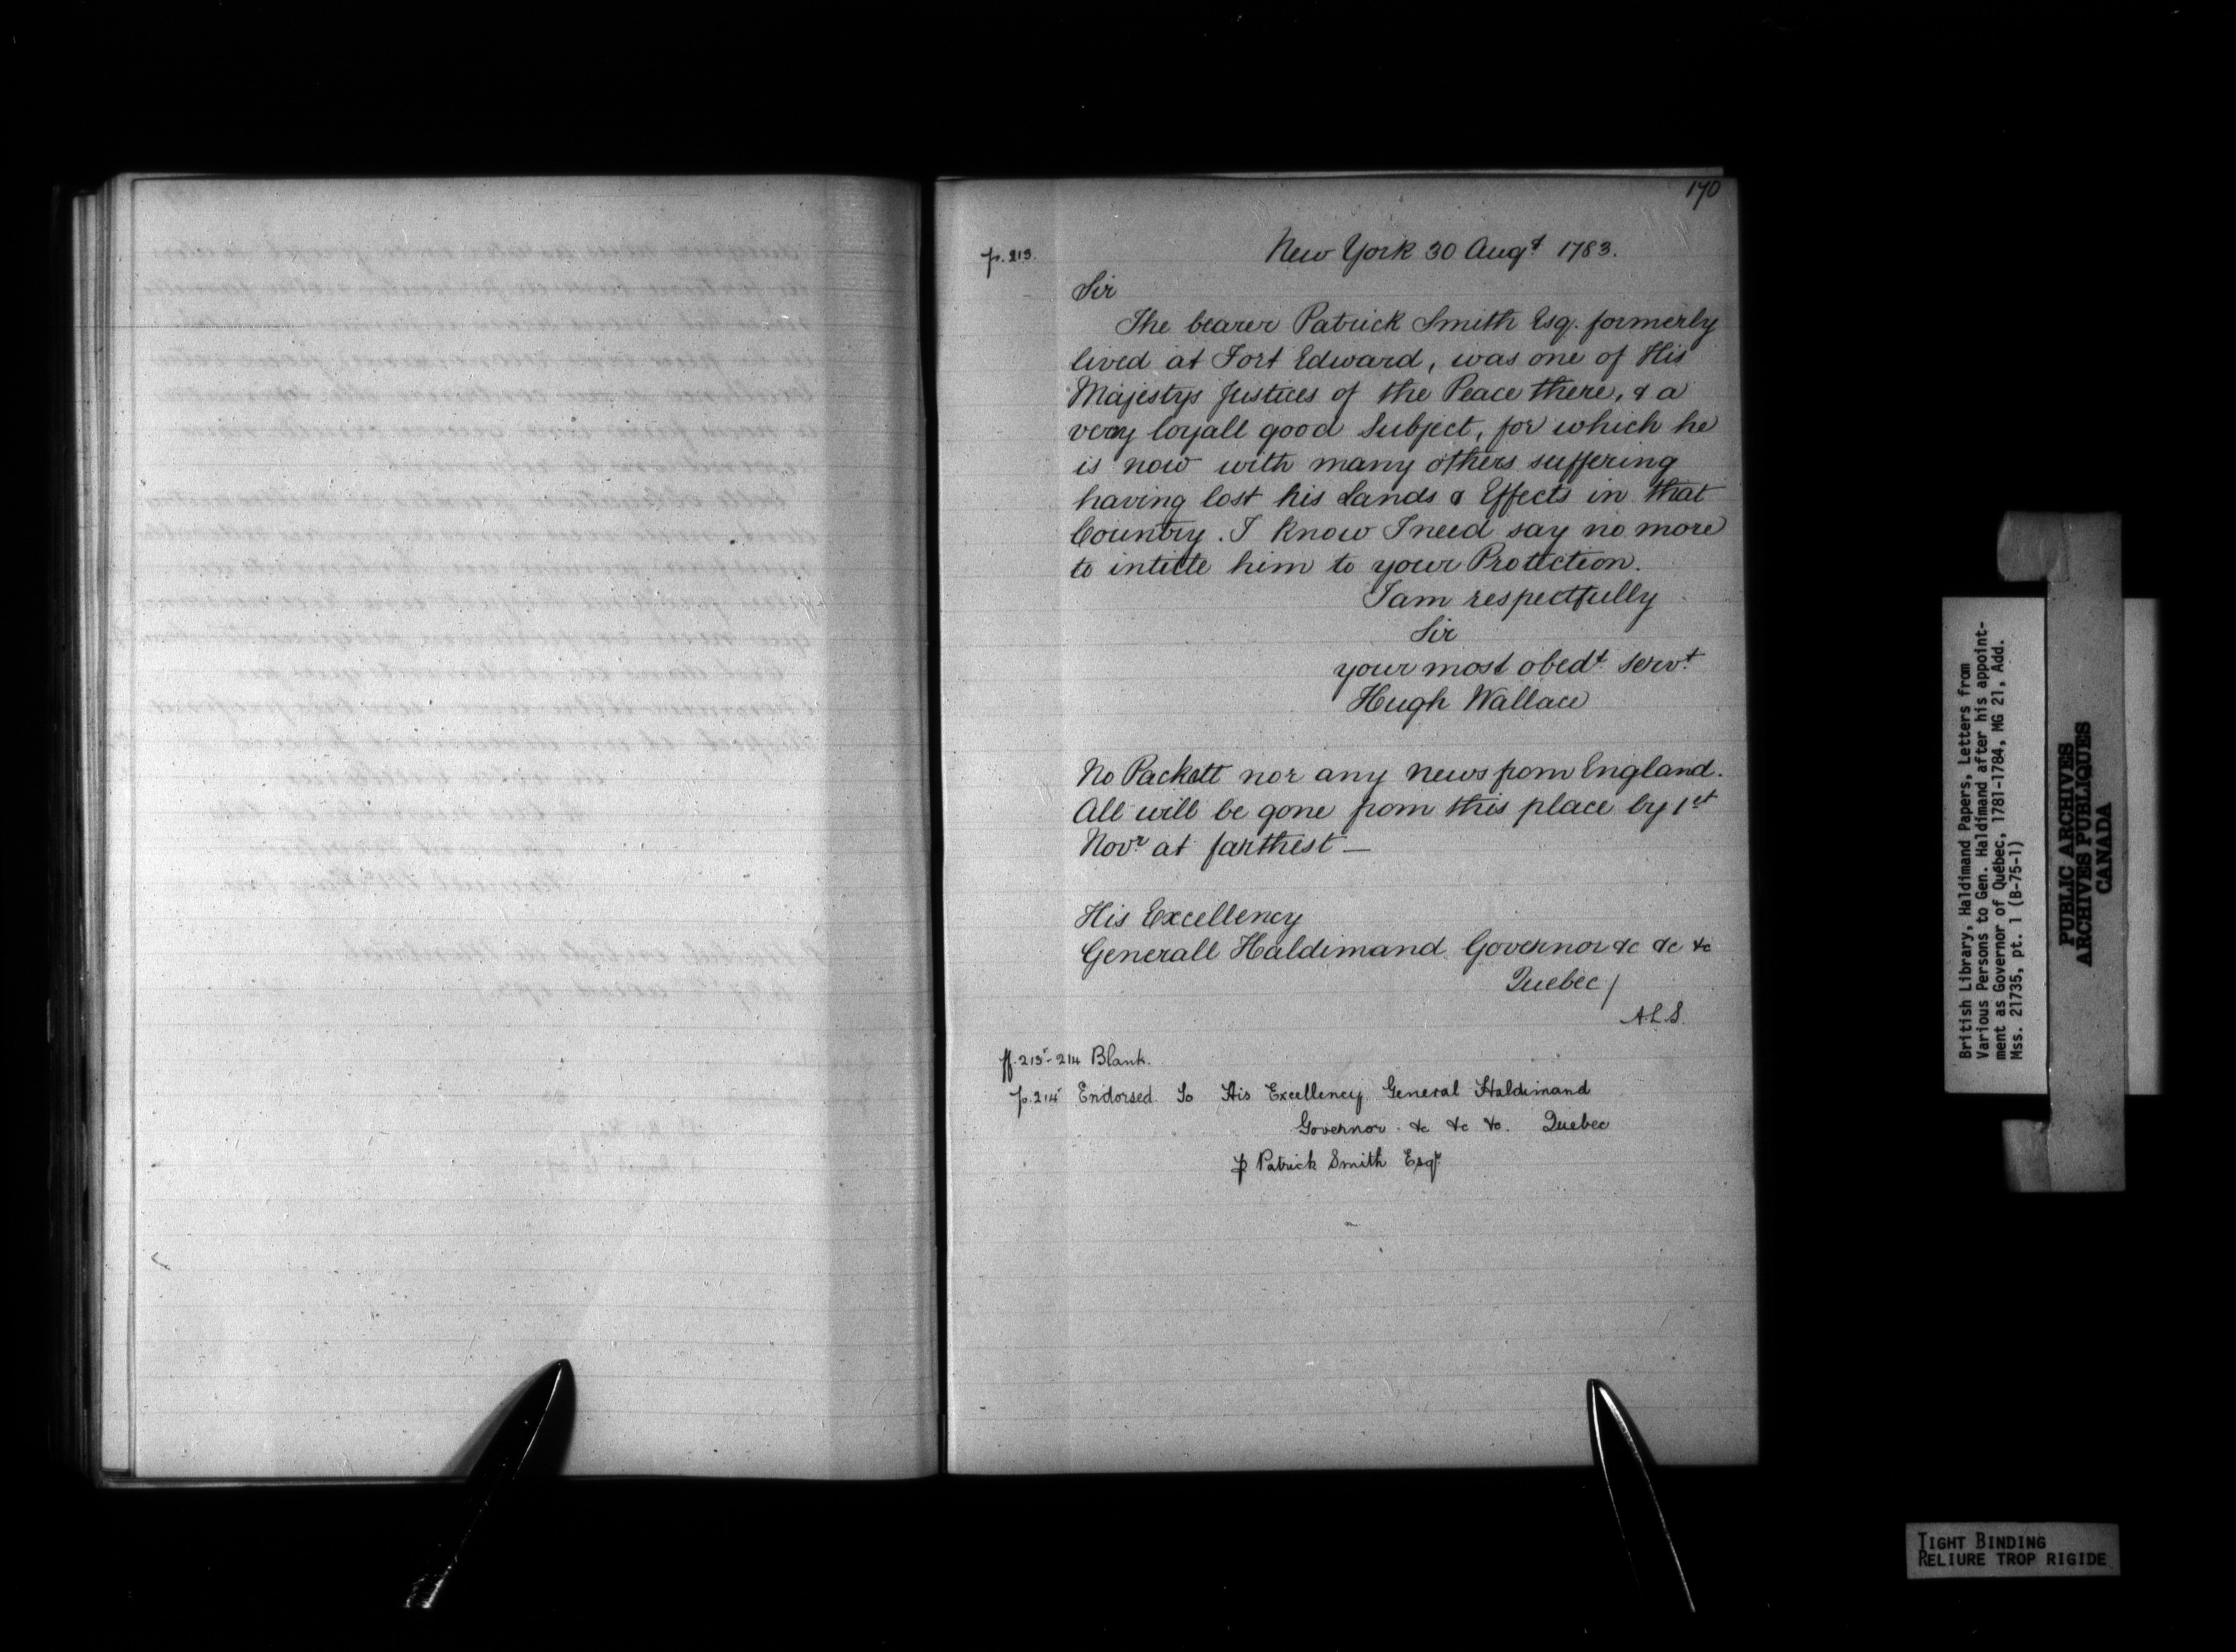 170
p. 213. New York 30 Augt 1783.
Sir
The bearer Patrick Smith Esq. formerly
lived at Fort Edward, was one of His
Majestys Justices of the Peace there, & a
very loyall good Subject, for which he
is now with many others suffering
having lost his Lands & Effects in that
Country. I know I need say no more
to intitle him to your Protection.
I am respectfully
Sir
your most obedt servt
Hugh Wallace
No Packett nor any news from England.
All will be gone from this place by 1st
Novr at farthest —
His Excellency
Generall Haldimand Governor &c &c &c
Quebec /
A.L.S.
ff. 213v-214 Blank.
p. 214v Endorsed To His Excellency General Haldimand
Governor &c &c &c. Quebec
p Patrick Smith Esqr
British Library, Haldimand Papers, Letters from
Various Persons to Gen. Haldimand after his appoint-
ment as Governor of Québec, 1781-1784, MG 21, Add.
Mss. 21735, pt. 1 (B-75-1)
PUBLIC ARCHIVES
ARCHIVES PUBLIQUES
CANADA
TIGHT BINDING
RELIURE TROP RIGIDE